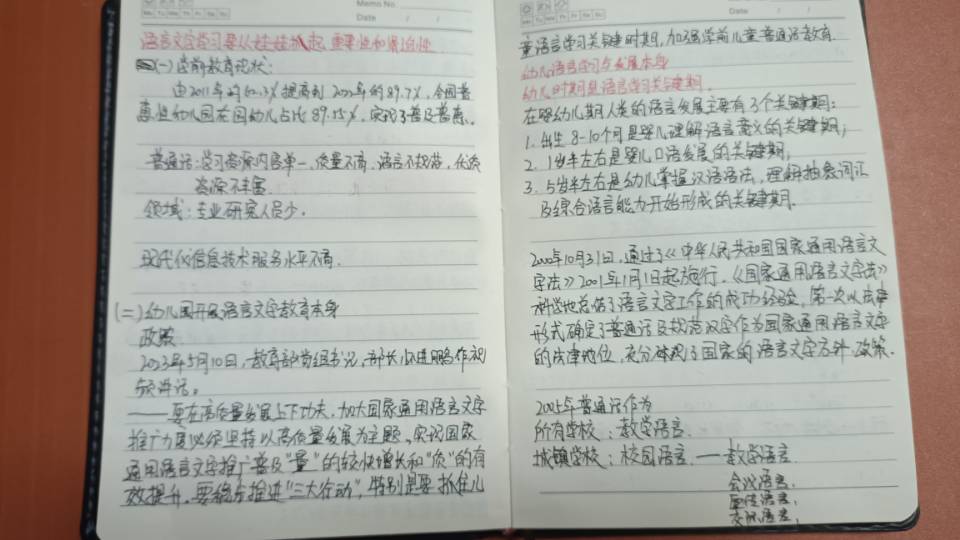 Memo No.
Mo Tu We Th Fr Sa Su
Date / /
语言文字学习要从娃娃抓起,重要性和紧迫性
(一)学前教育现状:
由2011年的62.3%提高到2022年的89.7%,全国普
惠性幼儿园在园幼儿占比89.55%,实现了普及普惠。
普通话:学习资源内容单一、质量不高、语言不规范、优质
资源不丰富.
领域:专业研究人员少。
现代化信息技术服务水平不高.
(二)幼儿园开展语言文字教育本身
政策
2023年5月10日,教育部党组书记、部长怀进鹏作视
频讲话。
——要在高质量发展上下功夫,加大国家通用语言文字
推广力度必须坚持以高质量发展为主题,实现国家
通用语言文字推广普及"量"的较快增长和"质"的有
效提升。要稳步推进"三大行动",特别是要抓住儿
Mo Tu We Th Fr Sa Su
Date / /
童语言学习关键时期,加强学前儿童普通话教育
幼儿语言学习与发展本身
幼儿时期是语言学习关键期.
在婴幼儿期人类的语言发展主要有3个关键期:
1. 出生8-10个月是婴儿理解语言意义的关键期;
2. 1岁半左右是婴儿口语发展的关键期;
3. 5岁半左右是幼儿掌握汉语语法,理解抽象词汇
及综合语言能力开始形成的关键期.
2000年10月31日,通过了《中华人民共和国国家通用语言文
字法》2001年1月1日起施行.《国家通用语言文字法》
科学地总结了语言文字工作的成功经验,第一次以法律
形式确定了普通话及规范汉字作为国家通用语言文字
的法律地位,充分体现了国家的语言文字方针、政策.
2005年普通话作为
所有学校:教学语言.
城镇学校:校园语言.——教学语言
会议语言;
宣传语言;
交际语言;